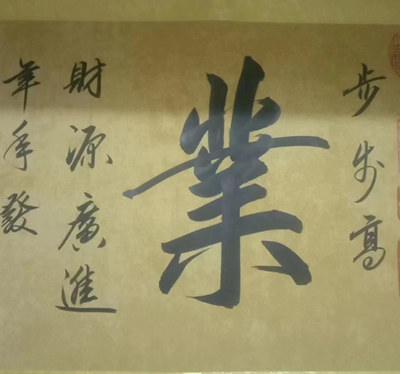 步步高
業
財源廣進
年年發